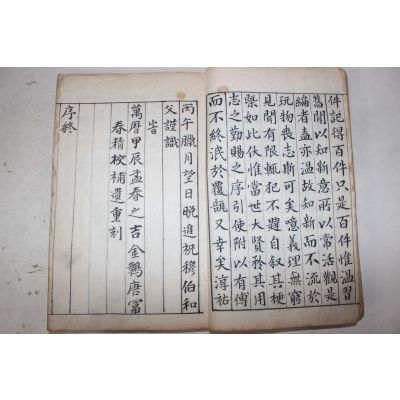 件記得百件只是百件惟温習
舊聞以知新意所以常活觀是
編者盍亦温故知新而不流於
玩物喪志斯可矣噫義理無窮
見聞有限輒犯不韙自叙其梗
槩如此伏惟當世大賢矜其用
志之勤賜之序引使附以有傳
而不終泯於覆瓿又幸矣淳祐
丙午臘月望日晩進祝穆伯和
父謹識
旹
萬曆甲辰孟春之吉金谿唐冨
春精校補遺重刻
序終